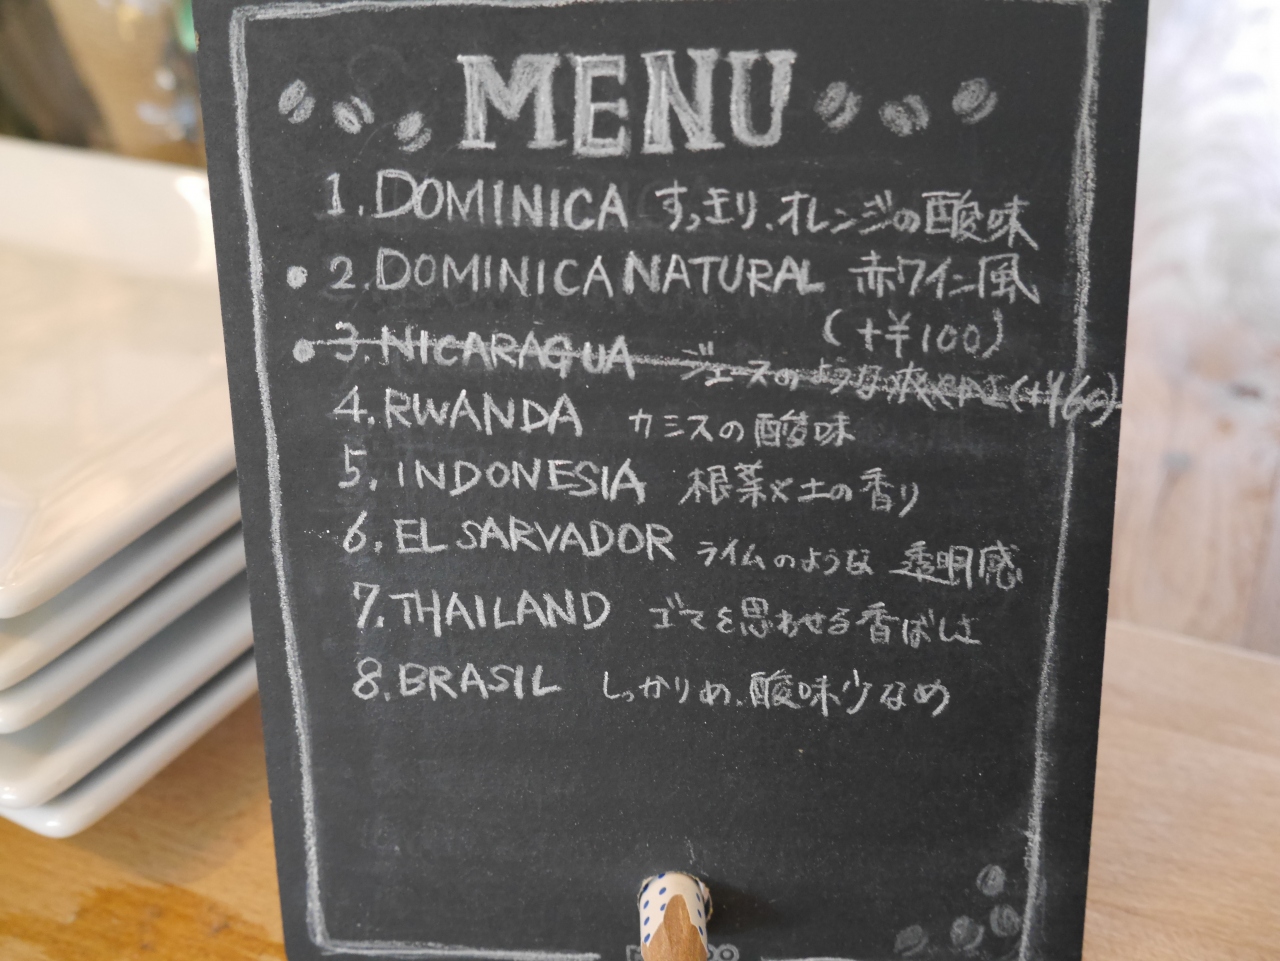 MENU
1. DOMINICA すっきり、オレンジの酸味
2. DOMINICA NATURAL 赤ワイン風
(+¥100)
3. NICARAGUA ジュースのような爽 (+¥60)
4. RWANDA カシスの酸味
5. INDONESIA 根菜×土の香り
6. EL SARVADOR ライムのような 透明感
7. THAILAND ゴマを思わせる香ばしさ
8. BRASIL しっかりめ、酸味少なめ